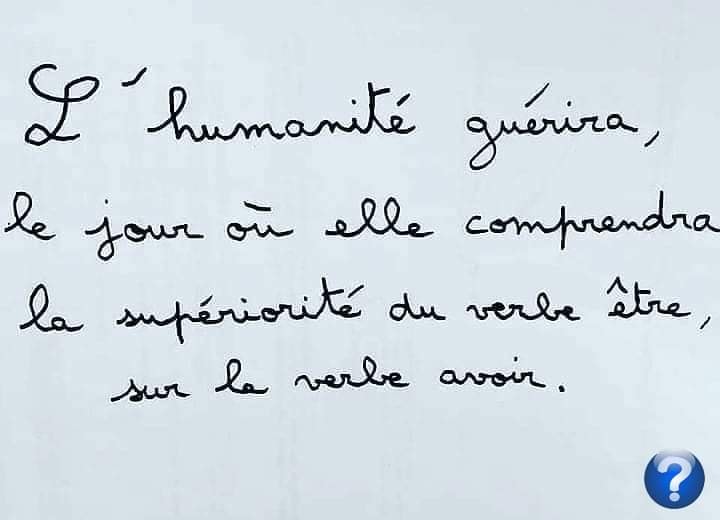 L'humanité guérira,
le jour où elle comprendra
la supériorité du verbe être,
sur le verbe avoir.
?